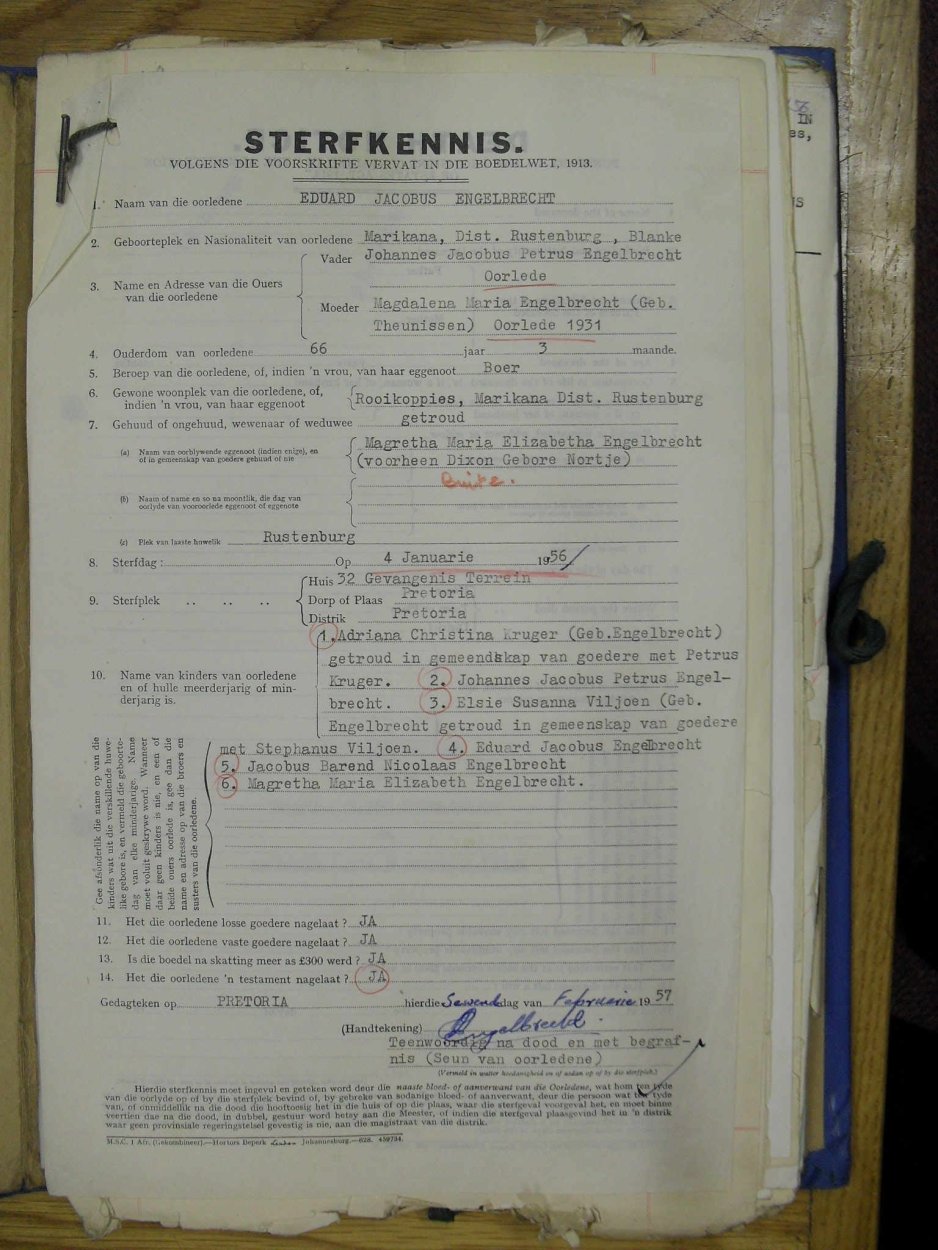 STERFKENNIS.
VOLGENS DIE VOORSKRIFTE VERVAT IN DIE BOEDELWET, 1913.
1. Naam van die oorledene EDUARD JACOBUS ENGELBRECHT
2. Geboorteplek en Nasionaliteit van oorledene Marikana, Dist. Rustenburg , Blanke
3. Name en Adresse van die Ouers van die oorledene
Vader Johannes Jacobus Petrus Engelbrecht
Oorlede
Moeder Magdalena Maria Engelbrecht (Geb.
Theunissen) Oorlede 1931
4. Ouderdom van oorledene 66 jaar 3 maande.
5. Beroep van die oorledene, of, indien 'n vrou, van haar eggenoot Boer
6. Gewone woonplek van die oorledene, of,
indien 'n vrou, van haar eggenoot Rooikoppies, Marikana Dist. Rustenburg
7. Gehuud of ongehuud, wewenaar of weduwee getroud
(a) Naam van oorblywende eggenoot (indien enige), en
of in gemeenskap van goedere gehuud of nie
Magretha Maria Elizabetha Engelbrecht
(voorheen Dixon Gebore Nortje)
Buite.
(b) Naam of name en so na moontlik, die dag van
oorlyde van vooroorlede eggenoot of eggenote
(c) Plek van laaste huwelik Rustenburg
8. Sterfdag : Op 4 Januarie 1956
9. Sterfplek .. .. ..
Huis 32 Gevangenis Terrein
Dorp of Plaas Pretoria
Distrik Pretoria
10. Name van kinders van oorledene
en of hulle meerderjarig of min-
derjarig is.
1. Adriana Christina Kruger (Geb.Engelbrecht)
getroud in gemeendskap van goedere met Petrus
Kruger. 2. Johannes Jacobus Petrus Engel-
brecht. 3. Elsie Susanna Viljoen (Geb.
Engelbrecht getroud in gemeenskap van goedere
met Stephanus Viljoen. 4. Eduard Jacobus Engelbrecht
5. Jacobus Barend Nicolaas Engelbrecht
6. Magretha Maria Elizabeth Engelbrecht.
Gee afsonderlik die name op van die
kinders wat uit die verskillende huwe-
like gebore is, en vermeld die geboorte-
dag van elke minderjarige. Name
moet voluit geskrywe word. Wanneer
daar geen kinders is nie, en een of
beide ouers oorlede is, gee dan die
name en adresse op van die broers en
susters van die oorledene.
11. Het die oorledene losse goedere nagelaat ? JA
12. Het die oorledene vaste goedere nagelaat ? JA
13. Is die boedel na skatting meer as £300 werd ? JA
14. Het die oorledene 'n testament nagelaat ? JA
Gedagteken op PRETORIA hierdie Sewende dag van Februarie 1957
(Handtekening) Engelbrecht.
Teenwoordig na dood en met begraf-
nis (Seun van oorledene)
(Vermeld in watter hoedanigheid en of sodan op of by die sterfplek.)
Hierdie sterfkennis moet ingevul en geteken word deur die naaste bloed- of aanverwant van die Oorledene, wat hom ten tyde
van die oorlyde op of by die sterfplek bevind of, by gebreke van sodanige bloed- of aanverwant, deur die persoon wat ten tyde
van, of onmiddellik na die dood die hooftoesig het in die huis of op die plaas, waar die sterfgeval voorgeval het, en moet binne
veertien dae na die dood, in dubbel, gestuur word hetsy aan die Meester, of indien die sterfgeval plaasgevind het in 'n distrik
waar geen provinsiale regeringstelsel gevestig is nie, aan die magistraat van die distrik.
M.S.C. 1 Afr. (Gekombineer).—Hortors Beperk Johannesburg.—628. 459754.